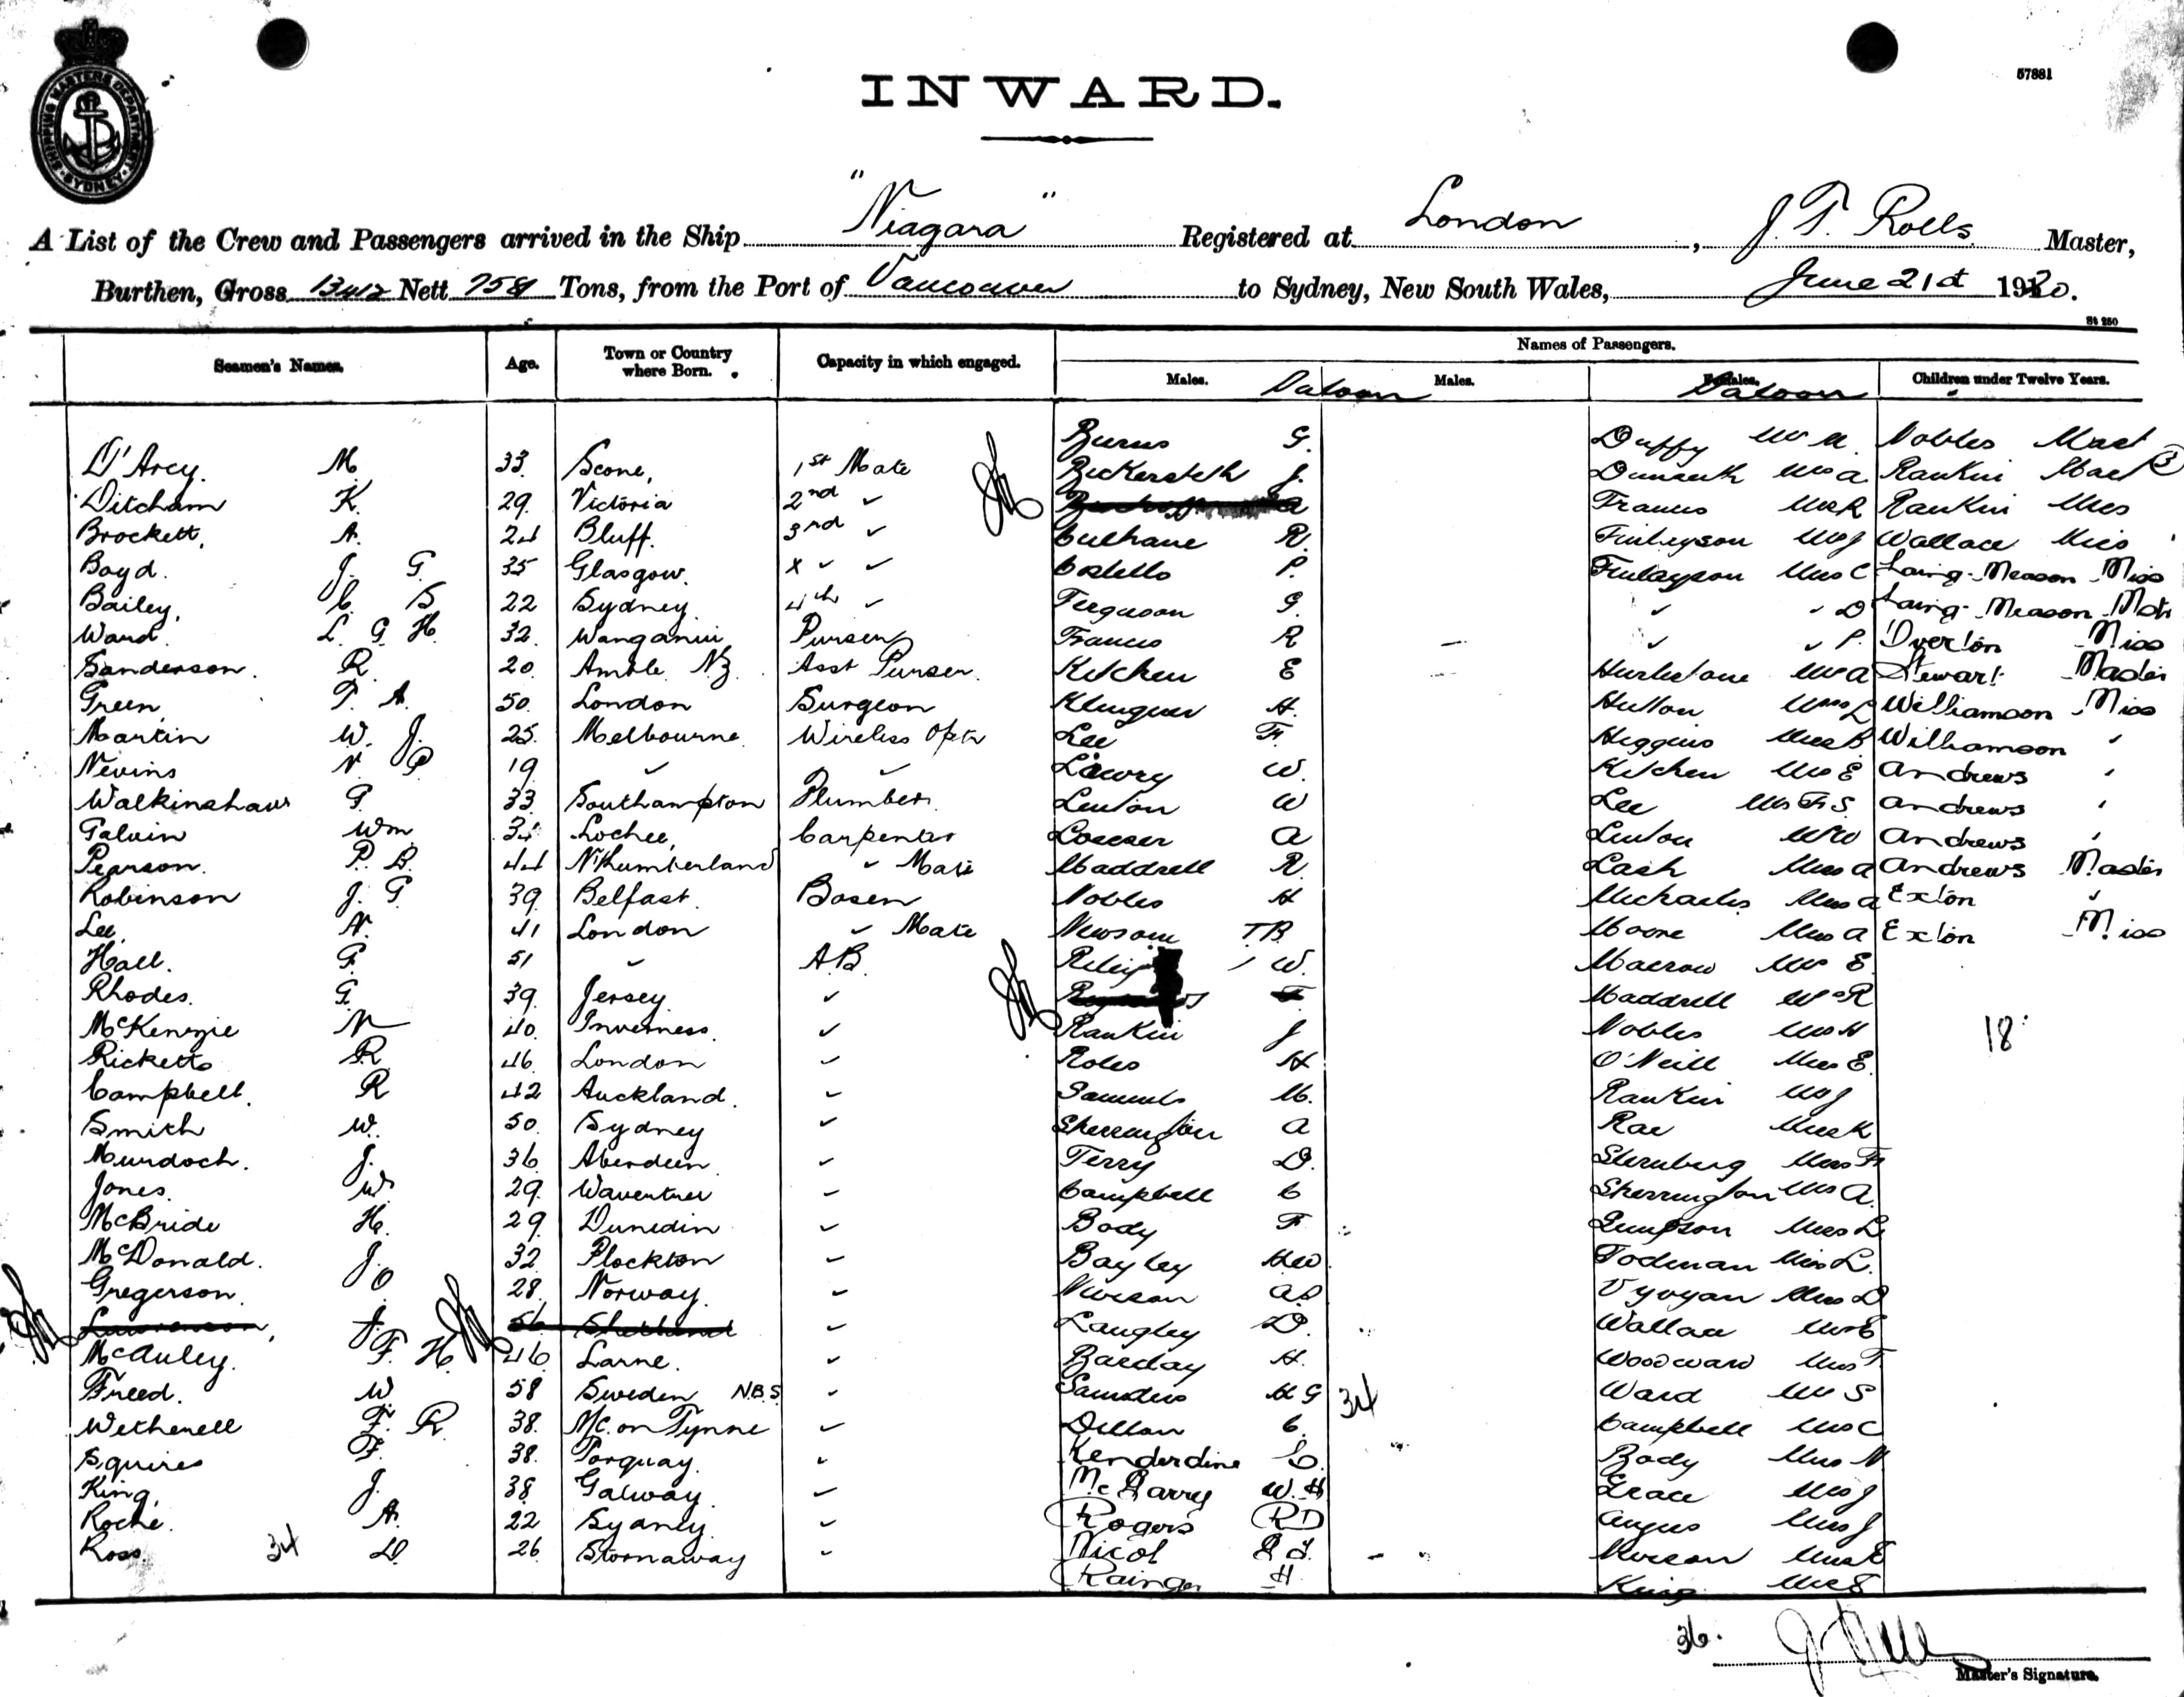 SHIPPING MASTERS DEPARTMENT SYDNEY
57881
INWARD.
A List of the Crew and Passengers arrived in the Ship "Niagara" Registered at London, J. T. Rolls Master,
Burthen, Gross 13415 Nett 7581 Tons, from the Port of Vancouver to Sydney, New South Wales, June 21st 1920.
St 250
Seamen's Names. Age. Town or Country where Born. Capacity in which engaged. Names of Passengers.
Males. Saloon Males. Females. Saloon Children under Twelve Years.
Burns G. Duffy Mrs M. Nobles Mast
D'Arcy. M. 33. Scone, 1st Mate Bickersteth J. Mrs A Rankin Mast 3
Ditcham K. 29. Victoria 2nd ✓ Francis Mrs R Rankin Miss
Brockett, A. 24 Bluff. 3rd ✓ Culhane R. Finlayson Mrs J Wallace Miss
Boyd. J. G. 35 Glasgow. x ✓ ✓ Costello P. Finlayson Miss C Laing-Meason Miss
Bailey, C. S 22 Sydney 4th ✓ Ferguson G. ✓ ✓ D Laing-Meason Mstr
Ward. L. G H. 32. Wanganui Purser Francis R ✓ ✓ P. Overton Miss
Sanderson. R. 20. Amble NZ. Asst Purser. Kitchen E Hurlestone Mrs A Stewart Master
Green, T. A. 50. London Surgeon Klingner H. Hutton Miss L Williamson Miss
Martin W. J. 25. Melbourne. Wireless Optr Lee F. Higgins Miss B Williamson "
Nevins N. P 19 ✓ ✓ Lowry W. Kitchen Mrs E Andrews "
Walkinshaw G. 33. Southampton Plumber. Linton W Lee Mrs F.S. Andrews "
Galvin Wm 34 Lochee, Carpenter Loeser A Linton Mrs W Andrews "
Pearson. P. B. 44 N'thumberland ✓ Mate Maddrell R. Lash Miss A Andrews Master
Robinson J. G 39. Belfast. Bosen Nobles H Michaelis Miss A Exton "
Lee, N. 41 London ✓ Mate Newsom T.B. Moore Miss A Exton Miss
Hall. G. 51 ✓ A.B. Riley W. Macrow Mrs E.
Rhodes. G. 39. Jersey. ✓ Maddrell Mrs R
McKenzie N 40. Inverness. ✓ Rankin J Nobles Mrs H 18
Ricketts R 46. London ✓ Roles H O'Neill Miss E.
Campbell. R 42 Auckland. ✓ Samuels M. Rankin Mrs J
Smith W. 50. Sydney ✓ Sherrington A Rae Miss K
Murdoch. J. 36. Aberdeen. ✓ Terry D. Sternberg Miss F
Jones. W. 29. ✓ Campbell C Sherrington Mrs A.
McBride H. 29. Dunedin ✓ Body F Simpson Miss L
McDonald. J. 32. Plockton ✓ Bayley H W. Todman Miss L.
Gregerson. O 28. Norway. ✓ A P Vyvyan Miss D
Lawrenson, J. 56 Shetland ✓ Langley D. Wallace Mrs E
McAuley. F. H. 46. Larne. ✓ Barclay H. Woodward Miss F.
Freed. W 58 Sweden N.B.S. ✓ Saunders H G 34 Ward Mrs S
Wetherell F. R. 38. Nc. on Tynne ✓ Dillon C. Campbell Mrs C
Squires F. 38. Torquay. ✓ Kenderdine C. Body Miss N
King, J. 38 Galway. ✓ McGarry W. H Grace Mrs J
Roche. A. 22 Sydney. ✓ Rogers RD Angus Miss J
Ross. 34 D. 26 Stornaway ✓ Nicol Miss E
Rainger H King Mrs E
36.
J Rolls
Master's Signature.